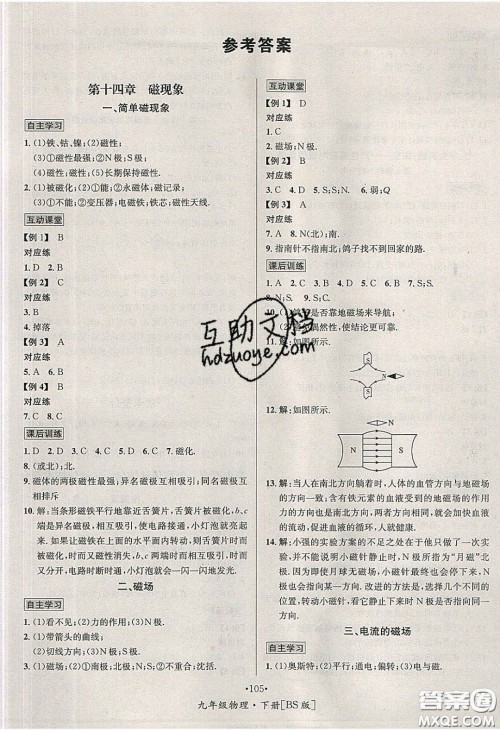 参考答案
第十四章 磁现象
一、简单磁现象
自主学习
1. (1)铁、钴、镍；(2)磁性；
(3)①磁性最强；②N极；S极；
(4)①磁性；(5)长期保持磁性.
2. (1)被磁化；(2)①不能；②永磁体；磁记录；
(3)①不能；②变压器；电磁铁；铁芯；磁性天线.
互动课堂
【例1】 B
对应练
1. D 2. B
【例2】 B
对应练
3. B
4. 掉落
【例3】 A
对应练
5. A 6. B
【例4】 B
对应练
7. C 8. C
课后训练
1. D 2. D 3. B 4. C 5. B 6. C 7. 磁化.
8. (或北)；北.
9. 磁体的两极磁性最强；异名磁极互相吸引；同名磁极互
相排斥
10. 解：当条形磁铁平行地靠近舌簧片，舌簧片被磁化，b、c
端是异名磁极，相互吸引，使电路接通，小灯泡亮起来.
如果让磁铁在上面的水平面内转动，由于磁化作用消失
时，舌簧片又因为本身的弹性而恢复原状，因而b、c又
分开，电路时断时通，小灯泡就会一闪一闪地发光.
二、磁场
自主学习
1. (1)看不见；(2)力的作用；(3)N极.
2. (1)带箭头的曲线；
(2)切线方向；(3)N极；S极.
3. (1)磁场；(2)①南极；北极；②不重合；沈括.
互动课堂
【例1】 D
对应练
1. C
2. 磁场；N极.
【例2】 C
对应练
3. C 4. C 5. S；S. 6. 弱；Q
【例3】 A
对应练
7. A 8. N(北)；南.
9. 指南针不指南北；鸽子找不到回家的路.
课后训练
1. D 2. C 3. A 4. B 5. A 6. D 7. S；S
8. N；S. 9. N；S.
12. 解：如图所示.
N S
13. 解：当人在南北方向躺着时，人体的血管方向与地磁场
的方向一致；含有铁元素的血液受到的地磁场的作用
力的方向与血液的流动方向相同，就会加快血液的
流动，有利于健康.
14. 解：小强的实验方案的不足之处在于他只做了一次实
验，并不能说明小磁针静止时N极指向“月磁”北极.
因为小磁针具有惯性，可能在某位置静止时，N极会
指向某一方向. 改进的方法是，选择几个不同的方
向，观察小磁针静止时N极是否总是指向同一方向.
三、电流的磁场
自主学习
1. (1)奥斯特；(2)平行；通电；偏转；(3)电与磁.
·105·
九年级物理·下册[BS版]
互助文档
hdzuoye.com
答案圈
MXQE.COM